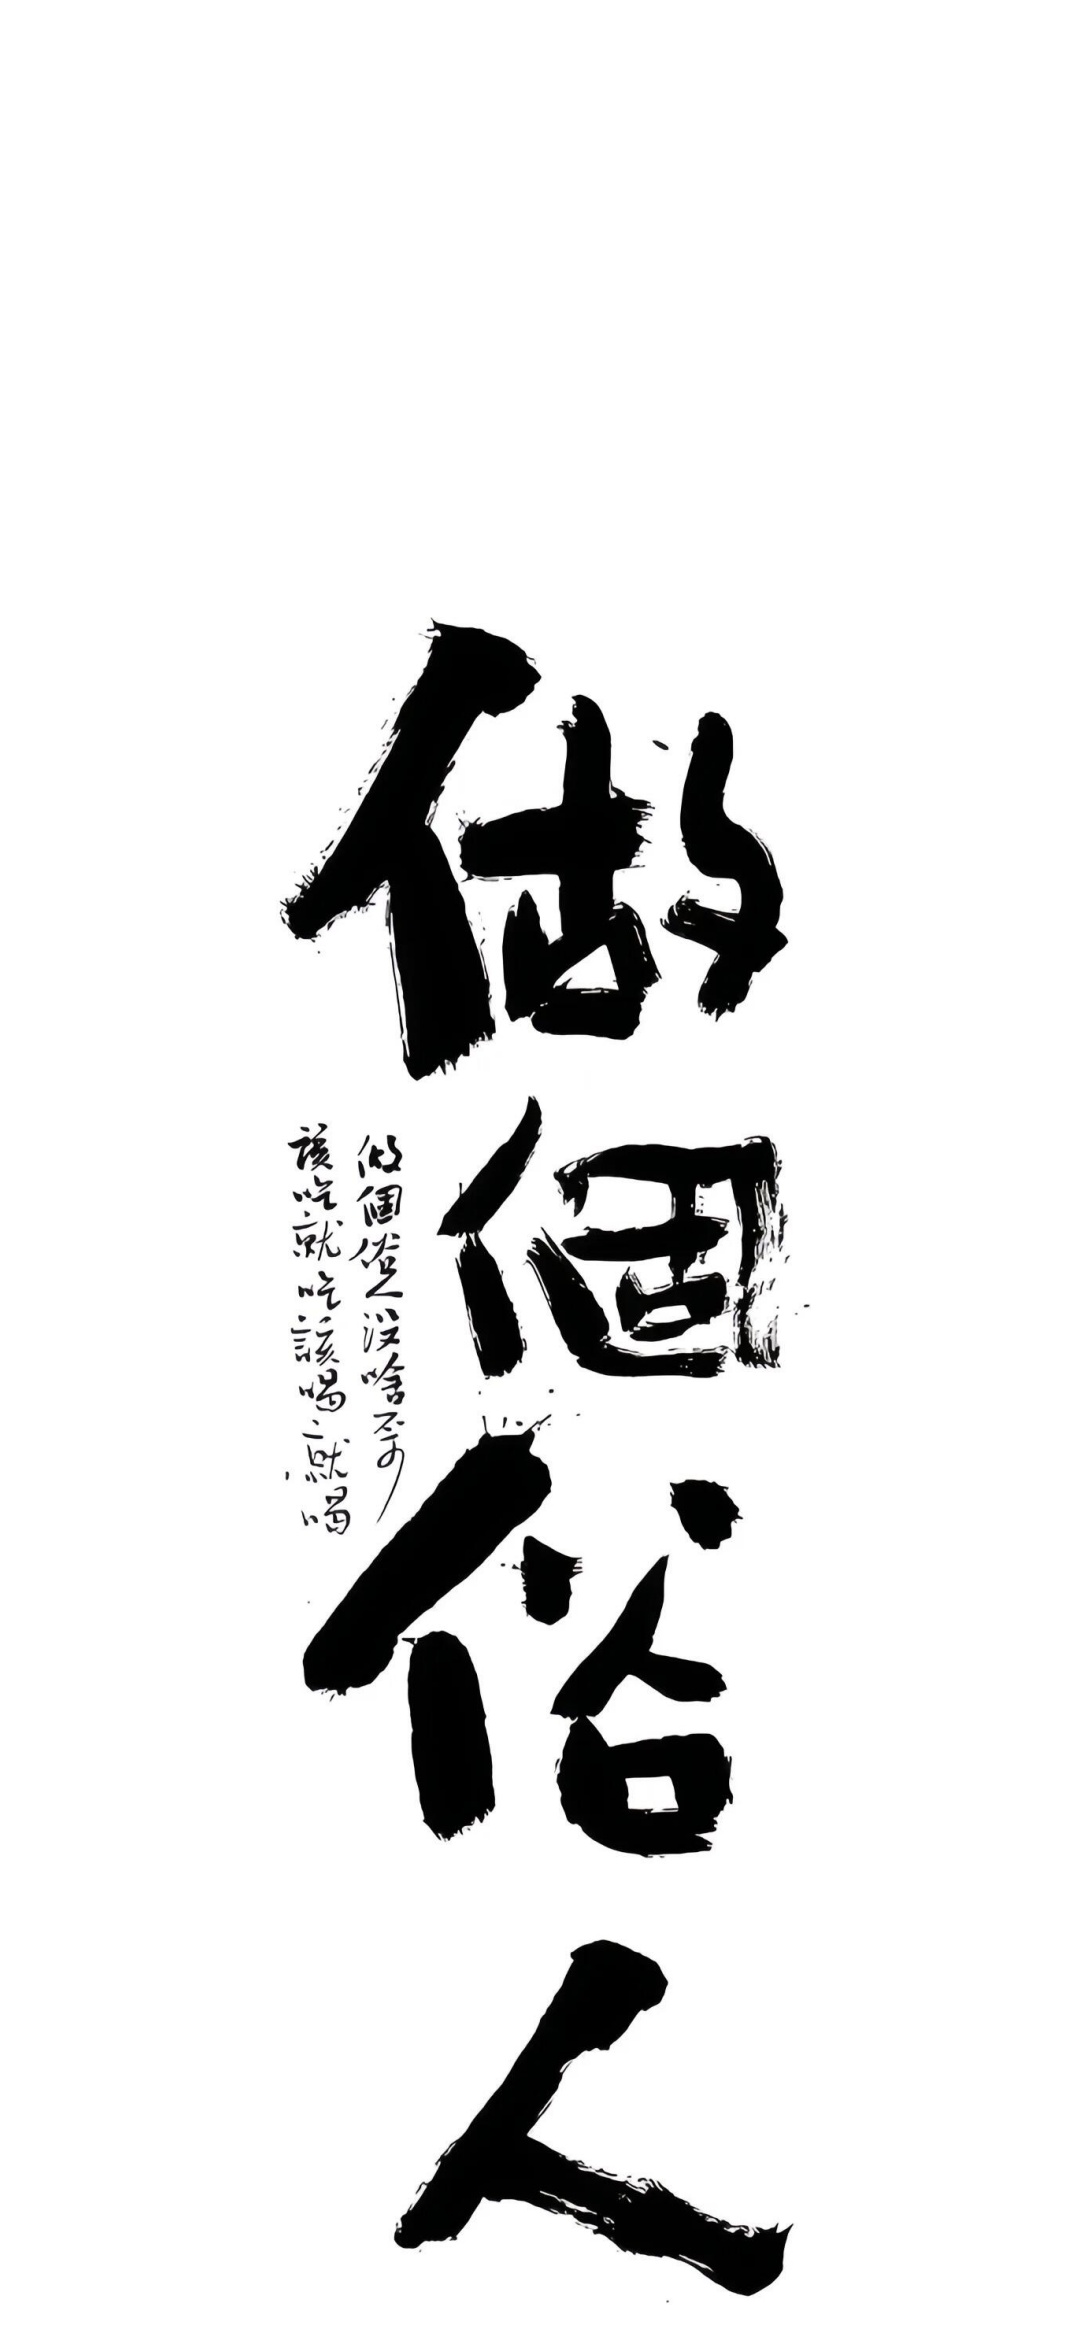 做個俗人
做個俗人沒啥不可
該吃就吃該喝就喝